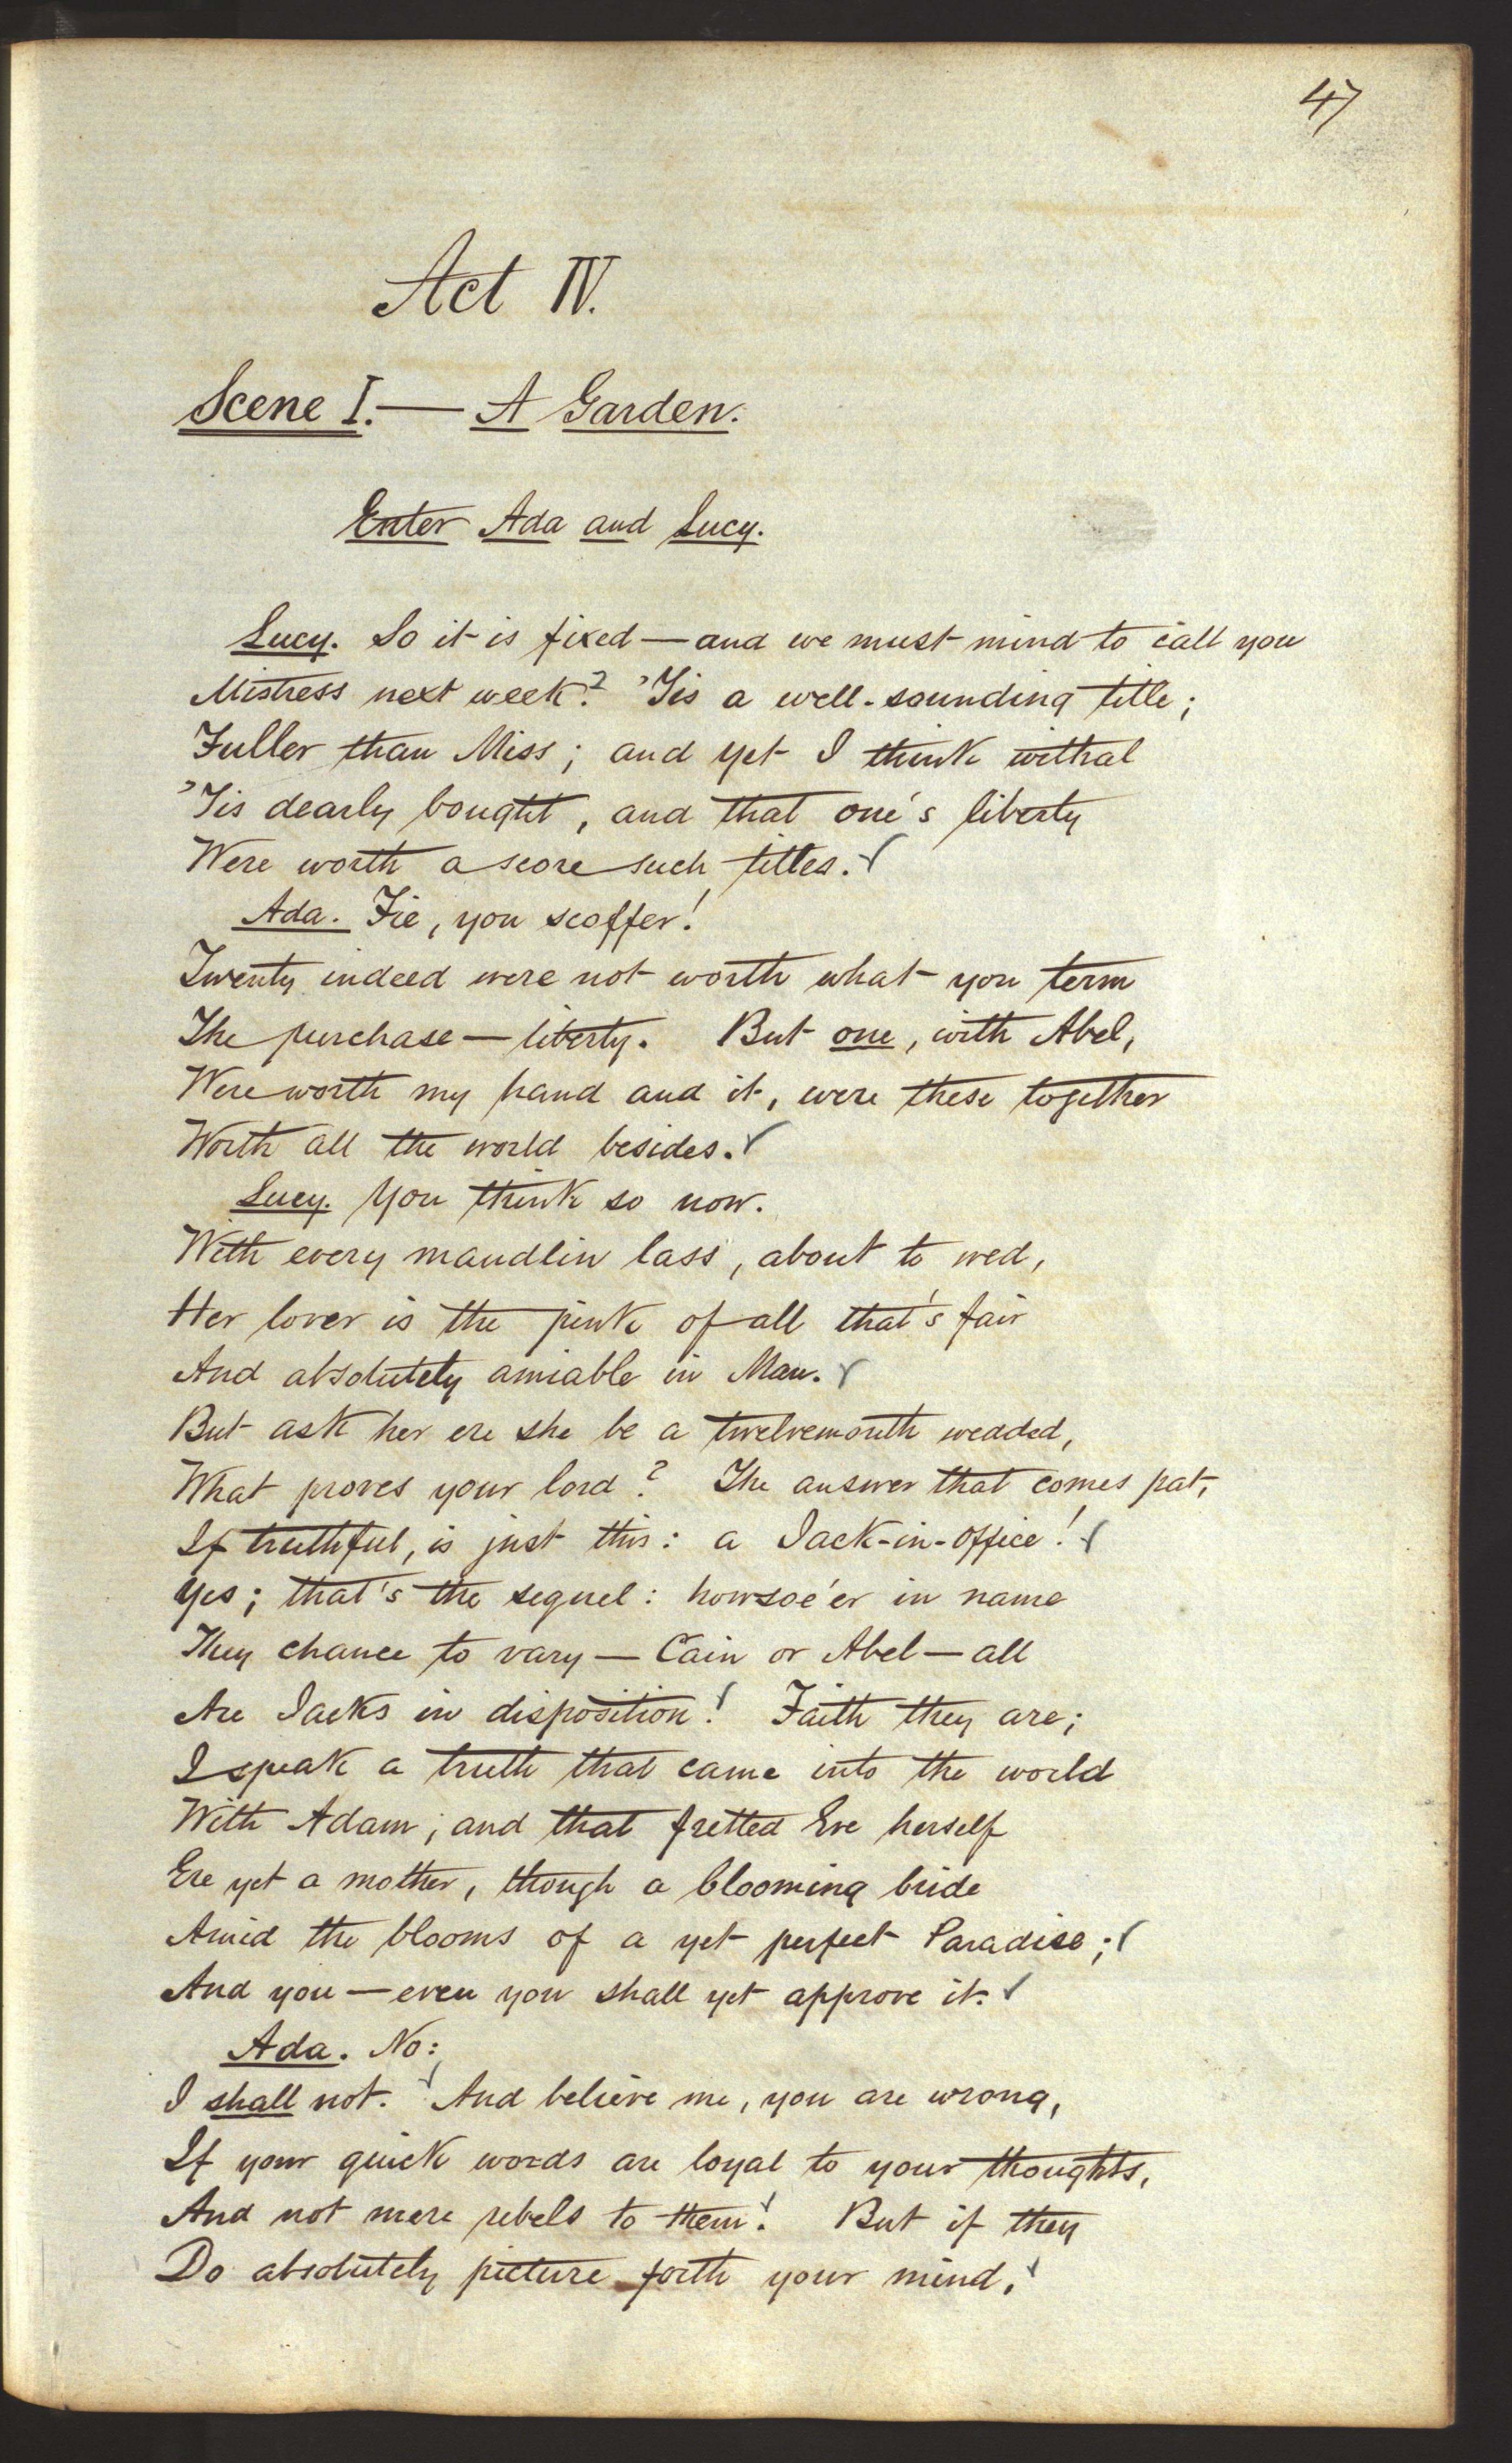 47
Act IV.
Scene I. — A Garden.
Enter Ada and Lucy.
Lucy. So it is fixed — and we must mind to call you
Mistress next week? 'Tis a well-sounding title;
Fuller than Miss; and yet I think withal
'Tis dearly bought, and that one's liberty
Were worth a score such titles.
Ada. Fie, you scoffer!
Twenty indeed were not worth what you term
The purchase — liberty. But one, with Abel,
Were worth my hand and it, were these together
Worth all the world besides.
Lucy. You think so now.
With every maudlin lass, about to wed,
Her lover is the pink of all that's fair
And absolutely amiable in Man.
But ask her ere she be a twelvemonth wedded,
What proves your lord? The answer that comes pat,
If truthful, is just this: a Jack-in-office!
Yes; that's the sequel: howsoe'er in name
They chance to vary — Cain or Abel — all
Are Jacks in disposition! Faith they are;
I speak a truth that came into the world
With Adam; and that fretted Eve herself
Ere yet a mother, though a blooming bride
Amid the blooms of a yet perfect Paradise;
And you — even you shall yet approve it.
Ada. No:
I shall not. And believe me, you are wrong,
If your quick words are loyal to your thoughts,
And not mere rebels to them! But if they
Do absolutely picture forth your mind,